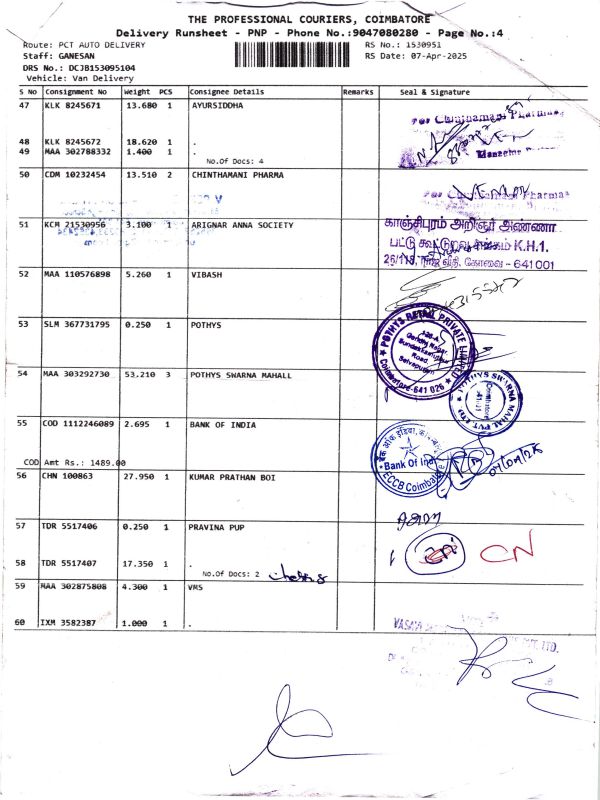 THE PROFESSIONAL COURIERS, COIMBATORE
Delivery Runsheet - PNP - Phone No.:9047080280 - Page No.:4
Route: PCT AUTO DELIVERY RS No.: 1530951
Staff: GANESAN RS Date: 07-Apr-2025
DRS No.: DCJB153095104
Vehicle: Van Delivery
S No Consignment No Weight PCS Consignee Details Remarks Seal & Signature
47 KLK 8245671 13.680 1 AYURSIDDHA
48 KLK 8245672 18.620 1 .
49 MAA 302788332 1.400 1 .
No.Of Docs: 4
Manager
50 CDM 10232454 13.510 2 CHINTHAMANI PHARMA
51 KCM 21530956 3.100 1 ARIGNAR ANNA SOCIETY
காஞ்சிபுரம் அறிஞர் அண்ணா
பட்டு கூட்டுறவு சங்கம் K.H.1.
கோவை - 641 001
52 MAA 110576898 5.260 1 VIBASH
53 SLM 367731795 0.250 1 POTHYS
POTHYS RETAIL PRIVATE LIMITED
Gandhi Nagar
Road
Selvapuram
Coimbatore-641 026
54 MAA 303292730 53.210 3 POTHYS SWARNA MAHALL
POTHYS SWARNA MAHAL PVT. LTD
Coimbatore
55 COD 1112246089 2.695 1 BANK OF INDIA
Bank Of Ind
ECCB Coimbatore
COD Amt Rs.: 1489.00
56 CHN 100863 27.950 1 KUMAR PRATHAN BOI
57 TDR 5517406 0.250 1 PRAVINA PUP
CN
58 TDR 5517407 17.350 1 .
No.Of Docs: 2
59 MAA 302875808 4.300 1 VMS
60 IXM 3582387 1.000 1 .